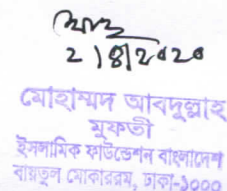 ২।৪।২০২০
মোহাম্মদ আবদুল্লাহ
মুফতী
ইসলামিক ফাউন্ডেশন বাংলাদেশ
বায়তুল মোকাররম, ঢাকা-১০০০